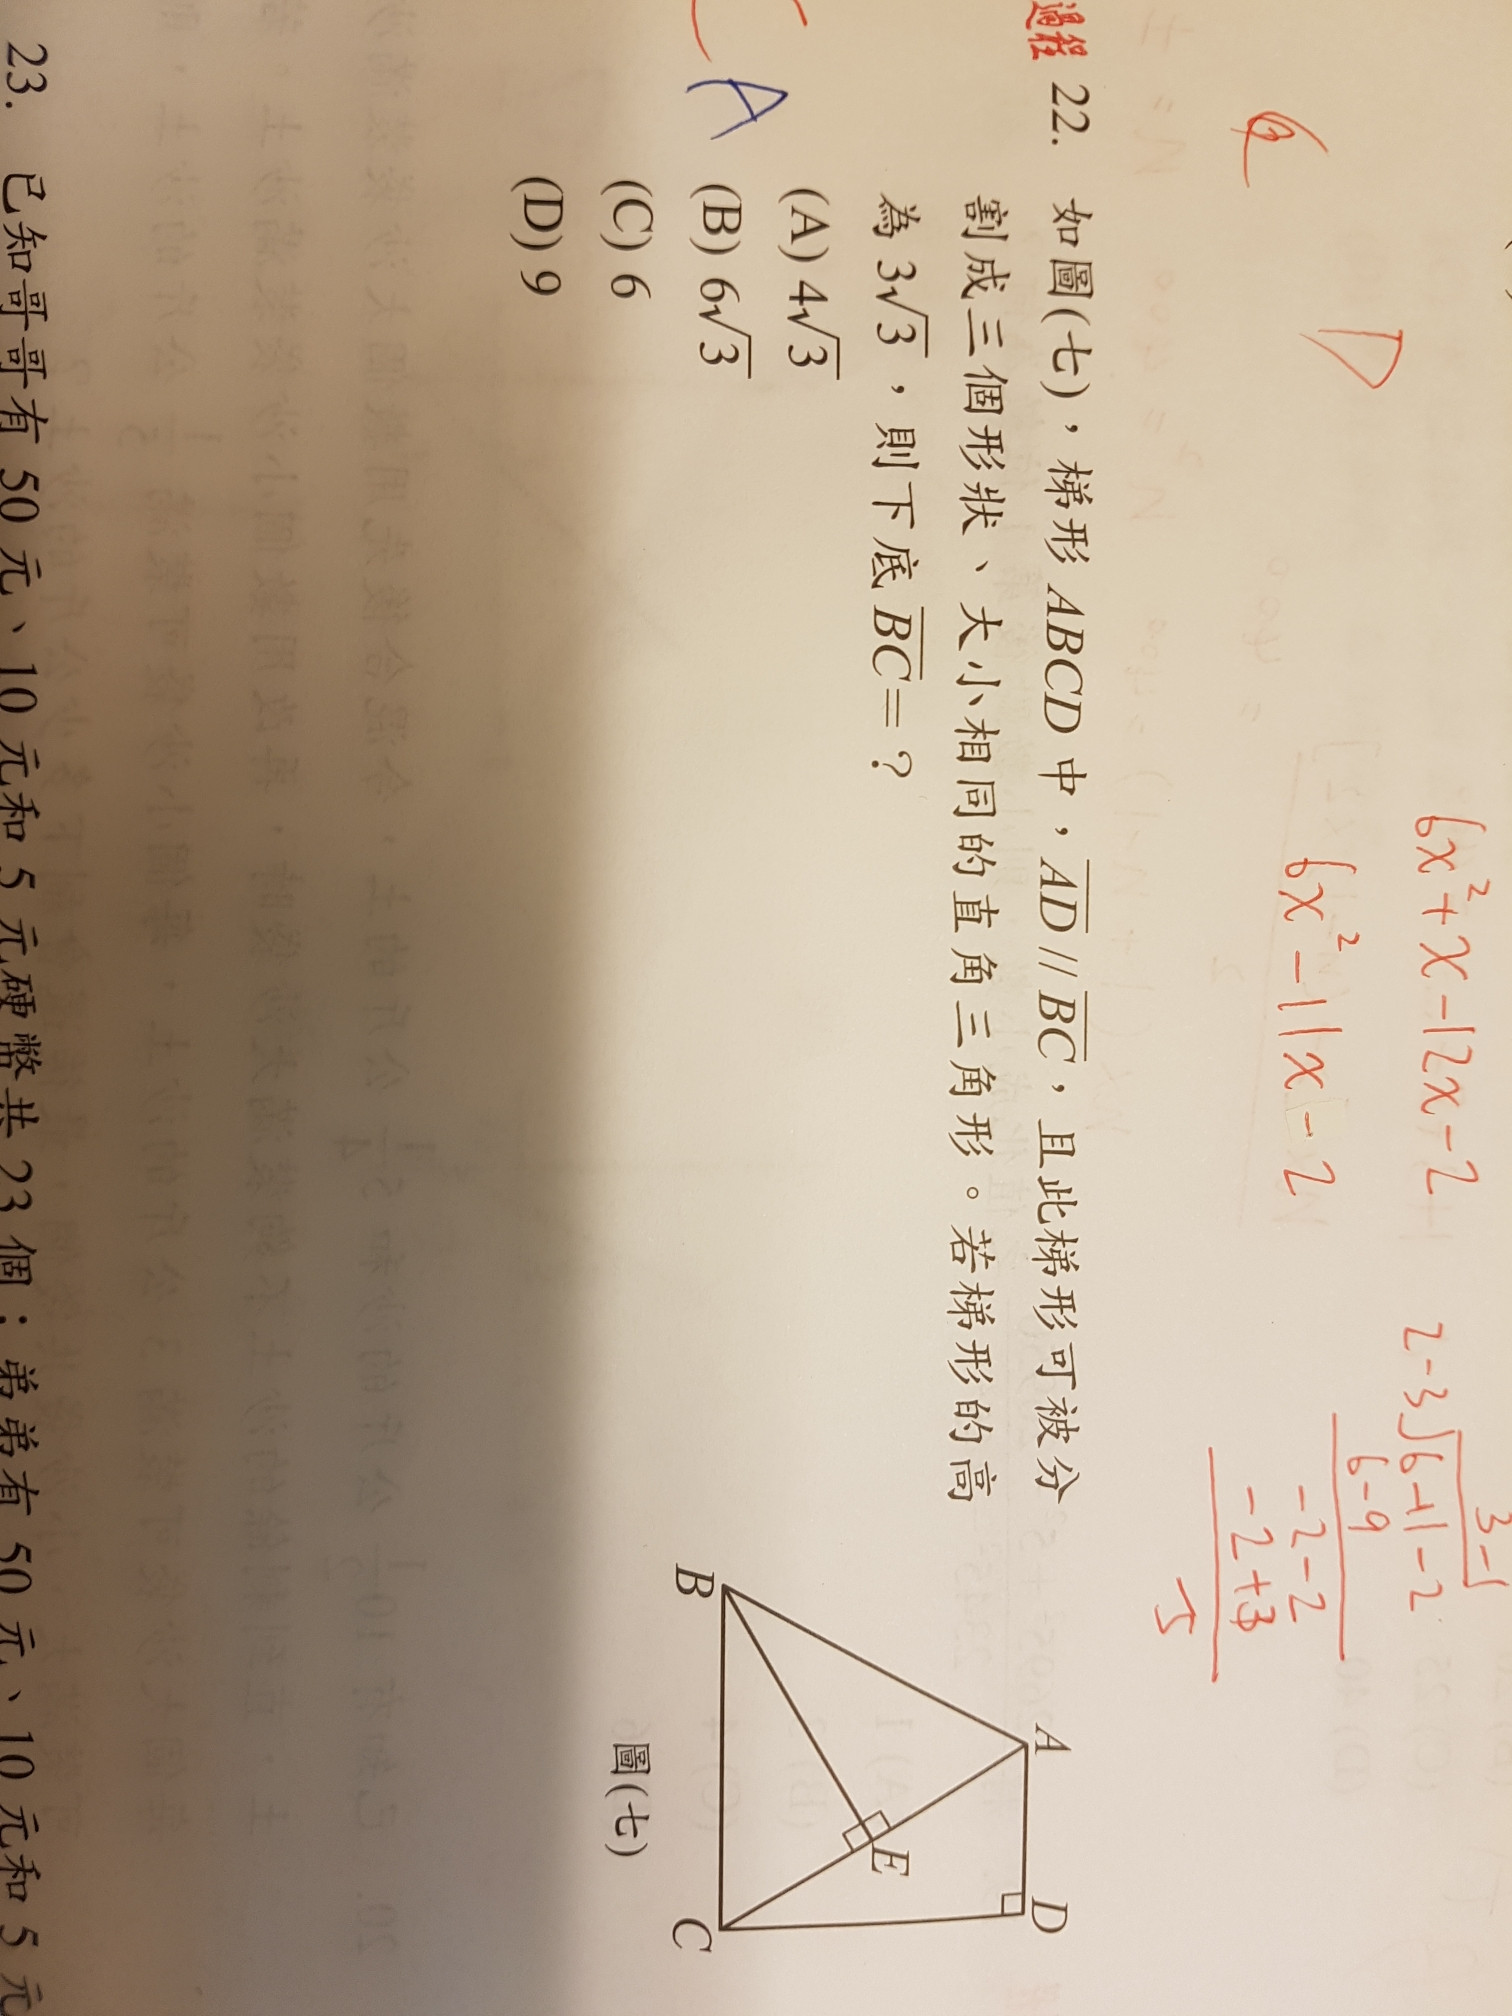 6x²+x-12x-2
6x²-11x-2
3-1
2-3√6-11-2
6-9
-2-2
-2+3
D
過程 22. 如圖(七),梯形 ABCD 中,AD // BC,且此梯形可被分
割成三個形狀、大小相同的直角三角形。若梯形的高
為 3√3,則下底 BC=?
A
(A) 4√3
(B) 6√3
(C) 6
(D) 9
A
D
E
B
C
圖(七)
23. 已知哥哥有 50 元、10 元和 5 元硬幣共 23 個;弟弟有 50 元、10 元和 5 元